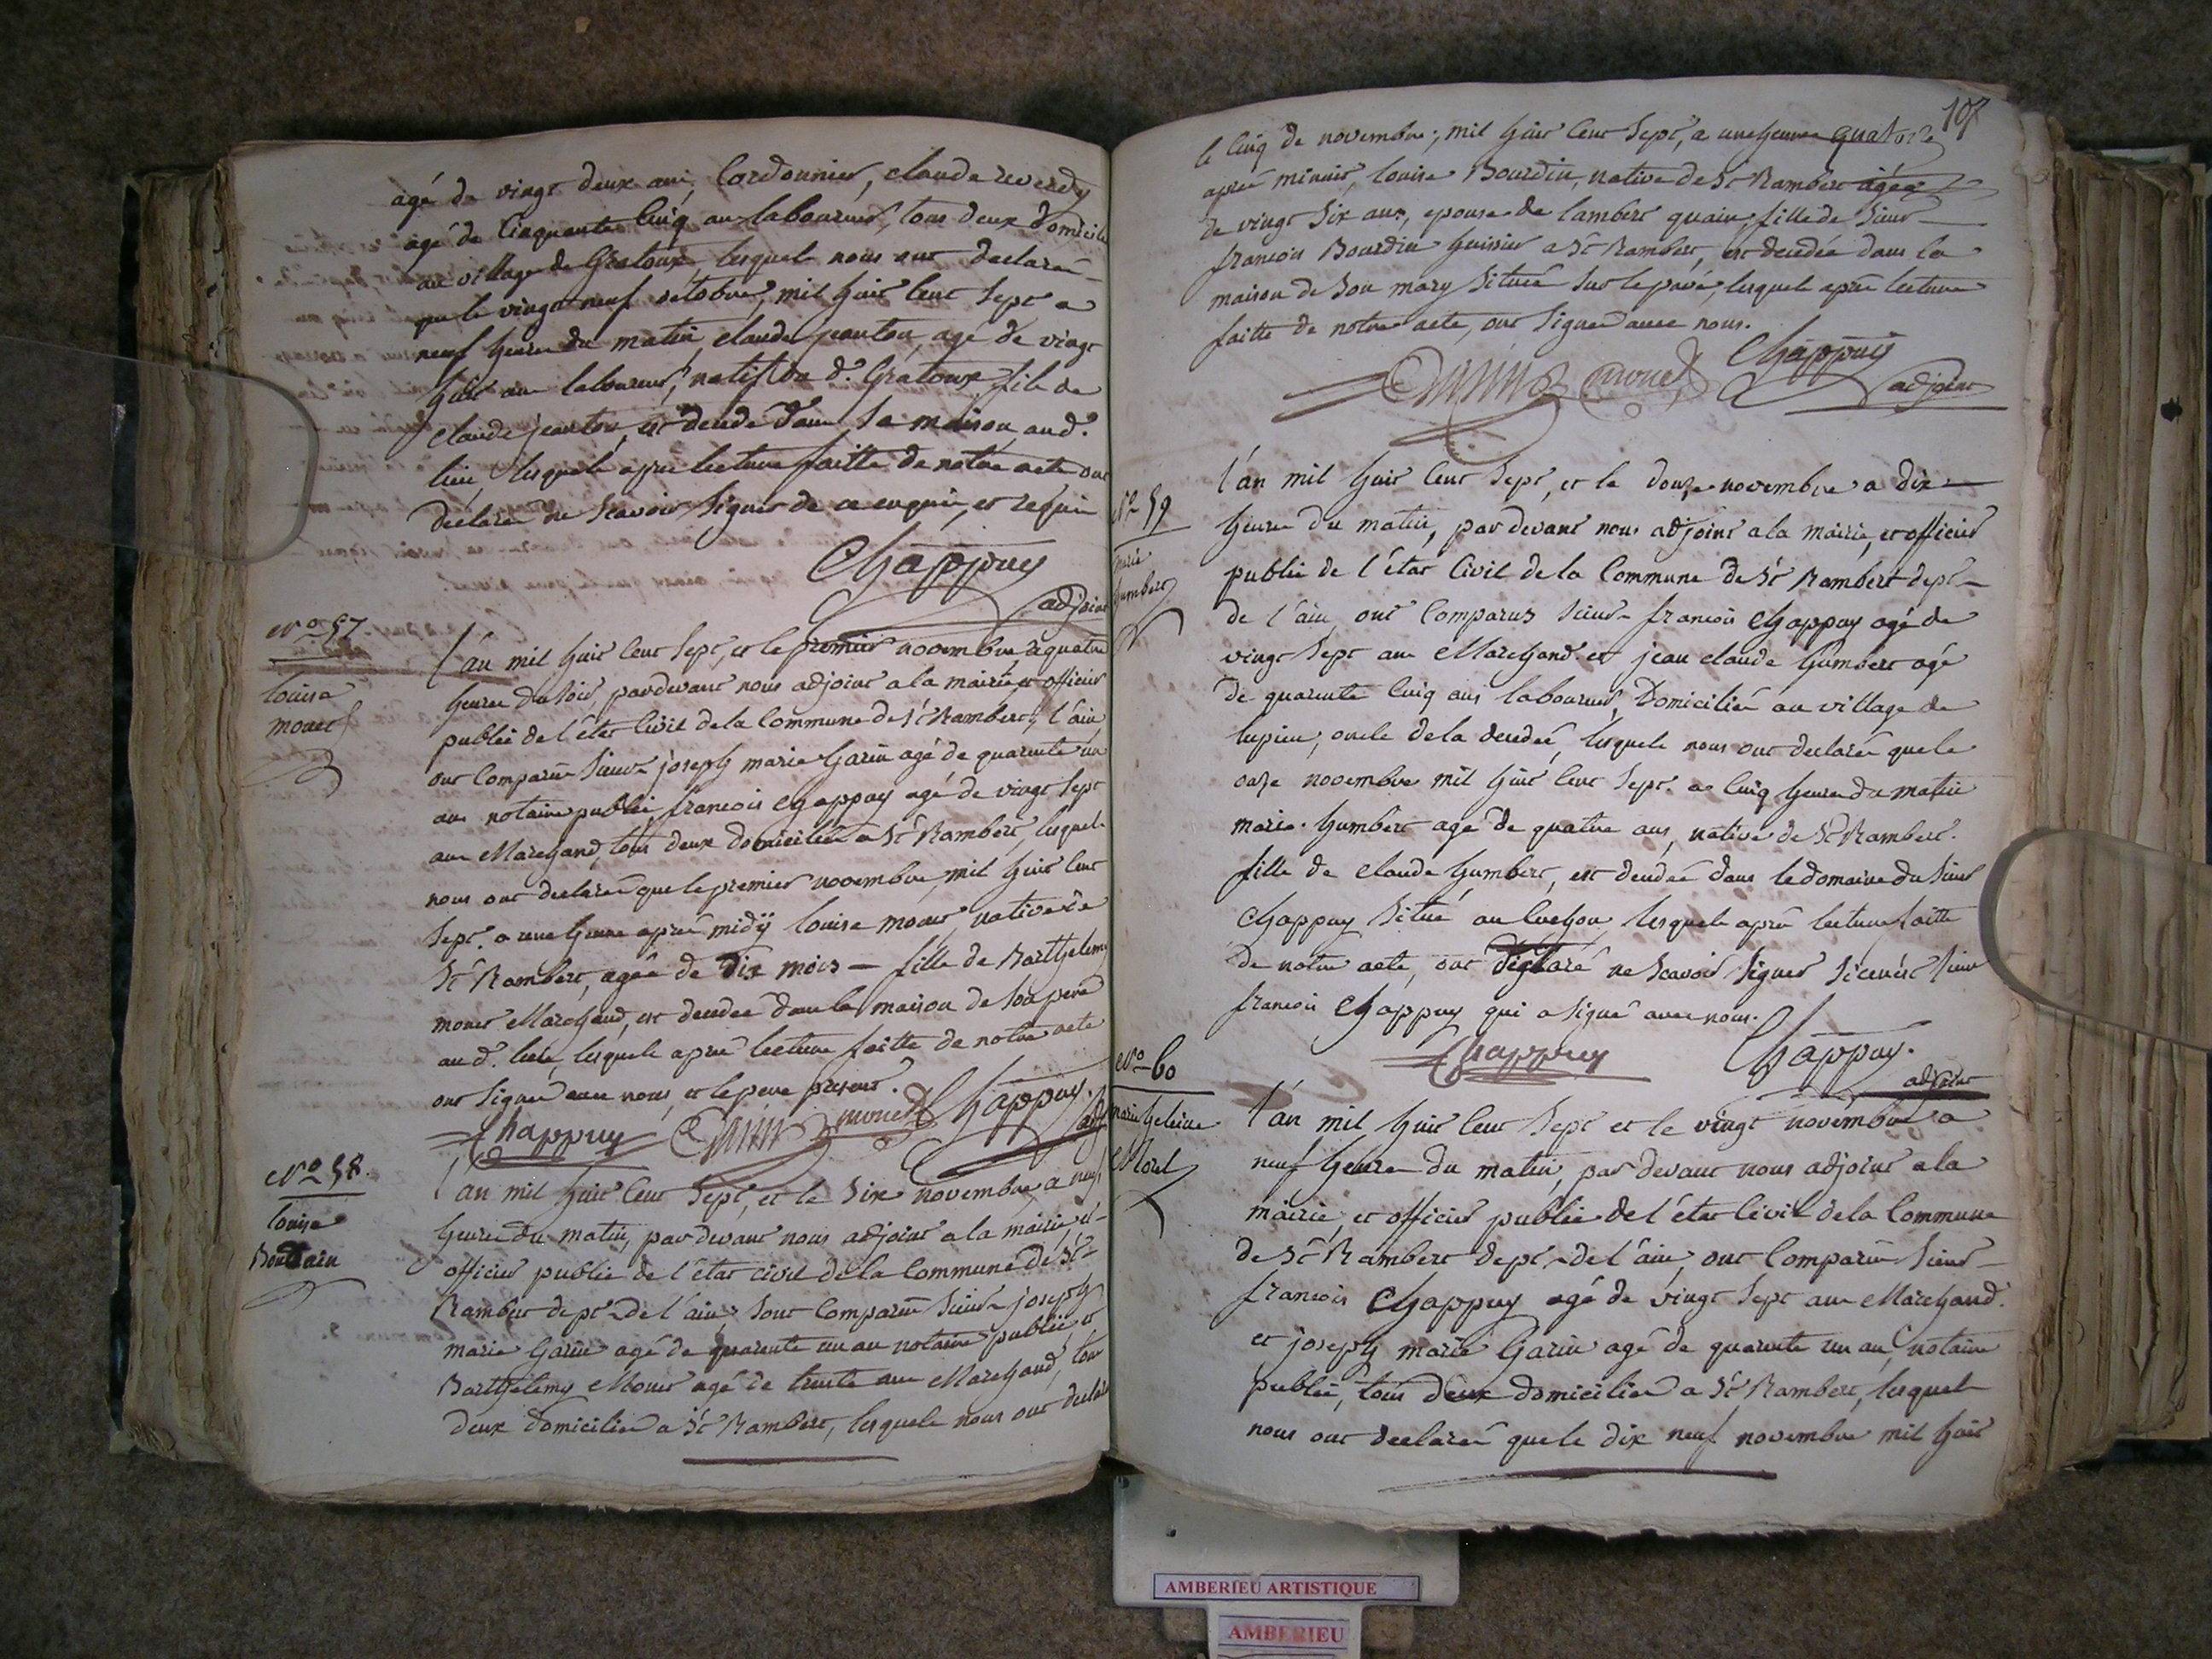 agé de vingt deux ans, Cordonnier, claude reverdy
agé de Cinquante Cinq ans laboureur, tous deux domicilié
au village de Gratoux, lesquels nous ont declarée
que le vingt neuf octobre, mil huit Cent Sept a
neuf heures du matin, claude jeanton, agé de vingt
huit ans laboureur, natif du d. Gratoux fils de
claude jeanton, est decedé dans sa maison, aud.
lieu, lesquels apres lecture faitte de notre acte ont
déclaré ne Scavoir Signer de ce enquis, et requis
Chappuy
adjoint
No 57
louise
monet
l'an mil huit Cent Sept, et le premier novembre a quatre
heures du soir, pardevant nous adjoint a la mairie, et officier
public de l'état Civil de la Commune de St Rambert, l'ain,
ont Comparus Sieurs joseph marie Garin agé de quarante un
ans notaire public, francois Chappuy agé de vingt Sept
ans Marchand, tous deux domiciliée a St Rambert, lesquels
nous ont declarée que le premier novembre, mil huit Cent
Sept. a une heure après midÿ louise monet, native de
St Rambert, agée de dix mois — fille de Barthelemy
monet Marchand, est decedée dans la maison de son pere
au d. lieu, lesquels après lecture faitte de notre acte
ont Signée avec nous, et le pere present.
Chappuy Garin monet Chappuy.
adj
No 58.
louise
Bourdin
l'an mil huit Cent Sept, et le Six novembre, a neuf
heures du matin, par devant nous adjoint a la mairie, et
officier public de l'état civil de la Commune de St
Rambert dept de l'ain, sont Comparus Sieurs joseph
marie Garin agé de quarante un an notaire public, et
Barthelemy Monet agé de trente ans Marchand, tous
deux domiciliée a St Rambert, lesquels nous ont declaré
107
le Cinq de novembre, mil huit Cent Sept, a une heure quatorze
après minuit, louise Bourdin, native de St Rambert agée
de vingt Six ans, epouse de lambert quain, fille de Sieur
francois Bourdin huissier a St Rambert, est decedée dans la
maison de Son mary Située Sur le pavé, lesquels après lecture
faitte de notre acte, ont Signée avec nous.
Garin monet Chappuy
adjoint
No 59
marie
humbert
l'an mil huit Cent Sept, et le douze novembre a dix
heures du matin, par devant nous adjoint a la mairie, et officier
public de l'état Civil de la Commune de St Rambert dept
de l'ain, ont Comparus Sieurs francois Chappuy agé de
vingt Sept ans Marchand. et jean claude humbert agé
de quarante Cinq ans laboureur, Domiciliée au village de
lupieu, oncle de la decedée, lesquels nous ont declarée que le
onze novembre mil huit Cent Sept. a Cinq heures du matin
marie. humbert agé de quatre ans, native de St Rambert.
fille de claude humbert, est decedée dans le domaine du Sieur
Chappuy Situé au lesquels après lecture faitte
de notre acte, ont déglaré ne Scavoir Signer Si ce n'est Sieur
francois Chappuy qui a Signé avec nous.
Chappuy Chappuy.
adjoint
No 60
marie heleine
Morel
l'an mil huit Cent Sept et le vingt novembre a
neuf heures du matin, par devant nous adjoint a la
mairie, et officier public de l'état Civil de la Commune
de St Rambert dept de l'ain, ont Comparus Sieurs
francois Chappuy agé de vingt Sept ans Marchand.
et joseph marie Garin agé de quarante un an, notaire
public, tous deux domiciliée a St Rambert, lesquels
nous ont declarée que le dix neuf novembre mil huit
AMBERIEU ARTISTIQUE
AMBERIEU